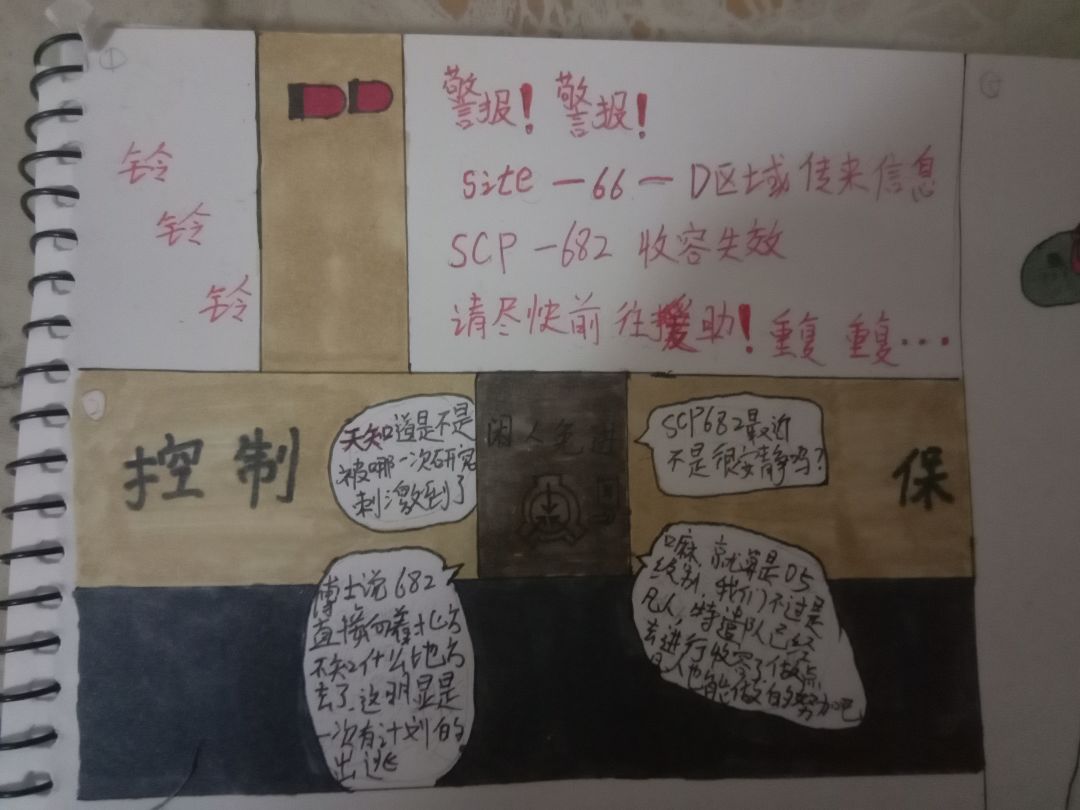 ①
铃
铃
铃
警报!警报!
site-66-D区域传来信息
SCP-682 收容失效
请尽快前往援助!重复 重复...
控制
天知道是不是
被哪一次研究
刺激到了
闲人免进
SCP682最近
不是很安静吗?
保
博士说682
直接向着北方
不知什么地方
去了.这明显是
一次有计划的
出逃
嘛 就算是O5
级别,我们不过是
凡人,特遣队已经
去进行收容了做点
凡人也能做的努力吧